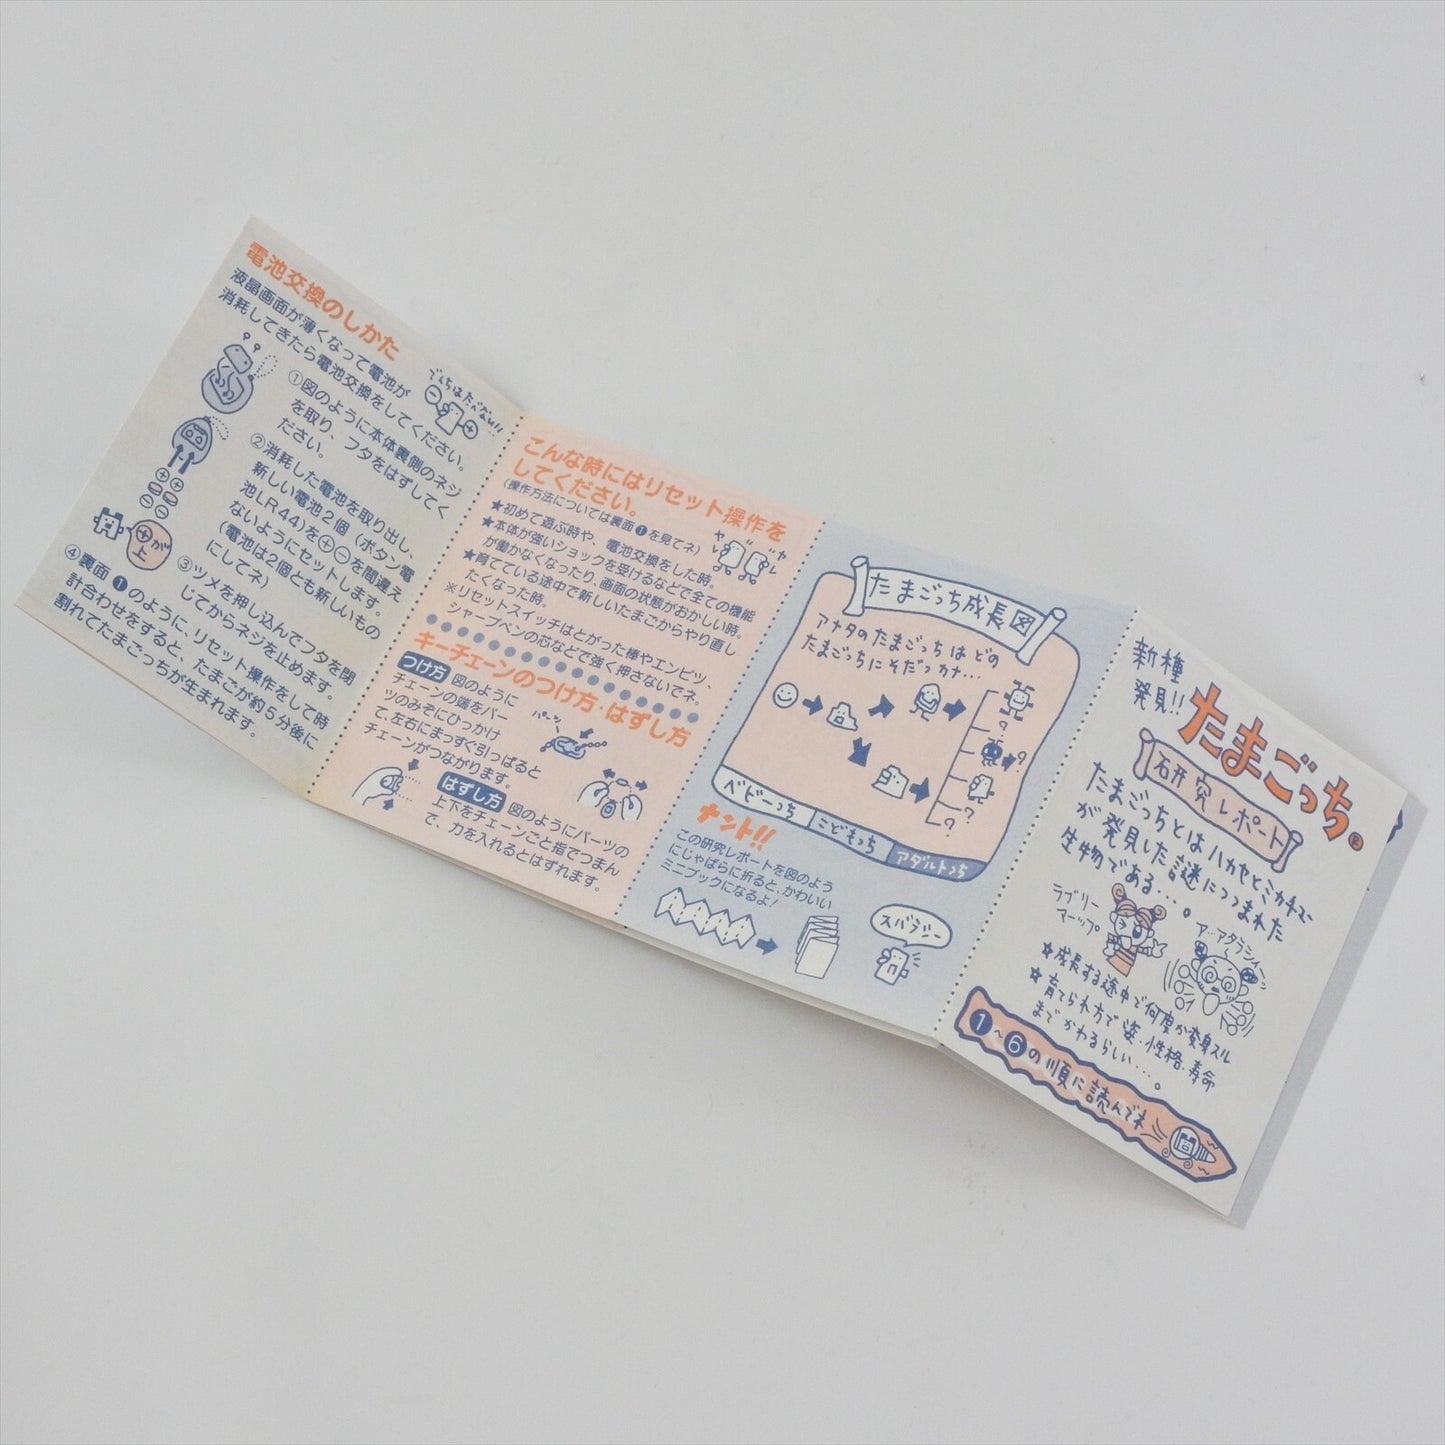 電池交換のしかた
液晶画面が薄くなって電池が
消耗してきたら電池交換をしてください。
でんちはたべない!!
①図のように本体裏側のネジ
を取り、フタをはずしてく
ださい。
②消耗した電池を取り出し、
新しい電池2個(ボタン電
池LR44)を⊕⊖を間違え
ないようにセットします。
(電池は2個とも新しいもの
にしてネ)
⊕が
上
③ツメを押し込んでフタを閉
じてからネジを止めます。
④裏面❶のように、リセット操作をして時
計合わせをすると、たまごが約5分後に
割れてたまごっちが生まれます。
こんな時にはリセット操作を
してください。
(操作方法については裏面❶を見てネ)
★初めて遊ぶ時や、電池交換をした時。
★本体が強いショックを受けるなどで全ての機能
が働かなくなったり、画面の状態がおかしい時。
★育てている途中で新しいたまごからやり直し
たくなった時。
※リセットスイッチはとがった棒やエンピツ、
シャープペンの芯などで強く押さないでネ。
キーチェーンのつけ方・はずし方
つけ方 図のように
チェーンの端をパー
ツのみぞにひっかけ
て、左右にまっすぐ引っぱると
チェーンがつながります。
パーツ
はずし方 図のようにパーツの
上下をチェーンごと指でつまん
で、力を入れるとはずれます。
たまごっち成長図
アナタのたまごっちはどの
たまごっちにそだつカナ…
?
?
?
?
ベビーっち
こどもっち
アダルトっち
ナント!!
この研究レポートを図のよう
にじゃばらに折ると、かわいい
ミニブックになるよ!
スバラシー
新種
発見!!
たまごっち®
研究レポート
たまごっちとはハカセとミカチュー
が発見した謎につつまれた
生物である…。
ラブリー
マーップ
ア…アタラシイ…
☆成長する途中で何度か変身スル
☆育てられ方で姿・性格・寿命
までかわるらしい…。
❶〜❻の順に読んでネ